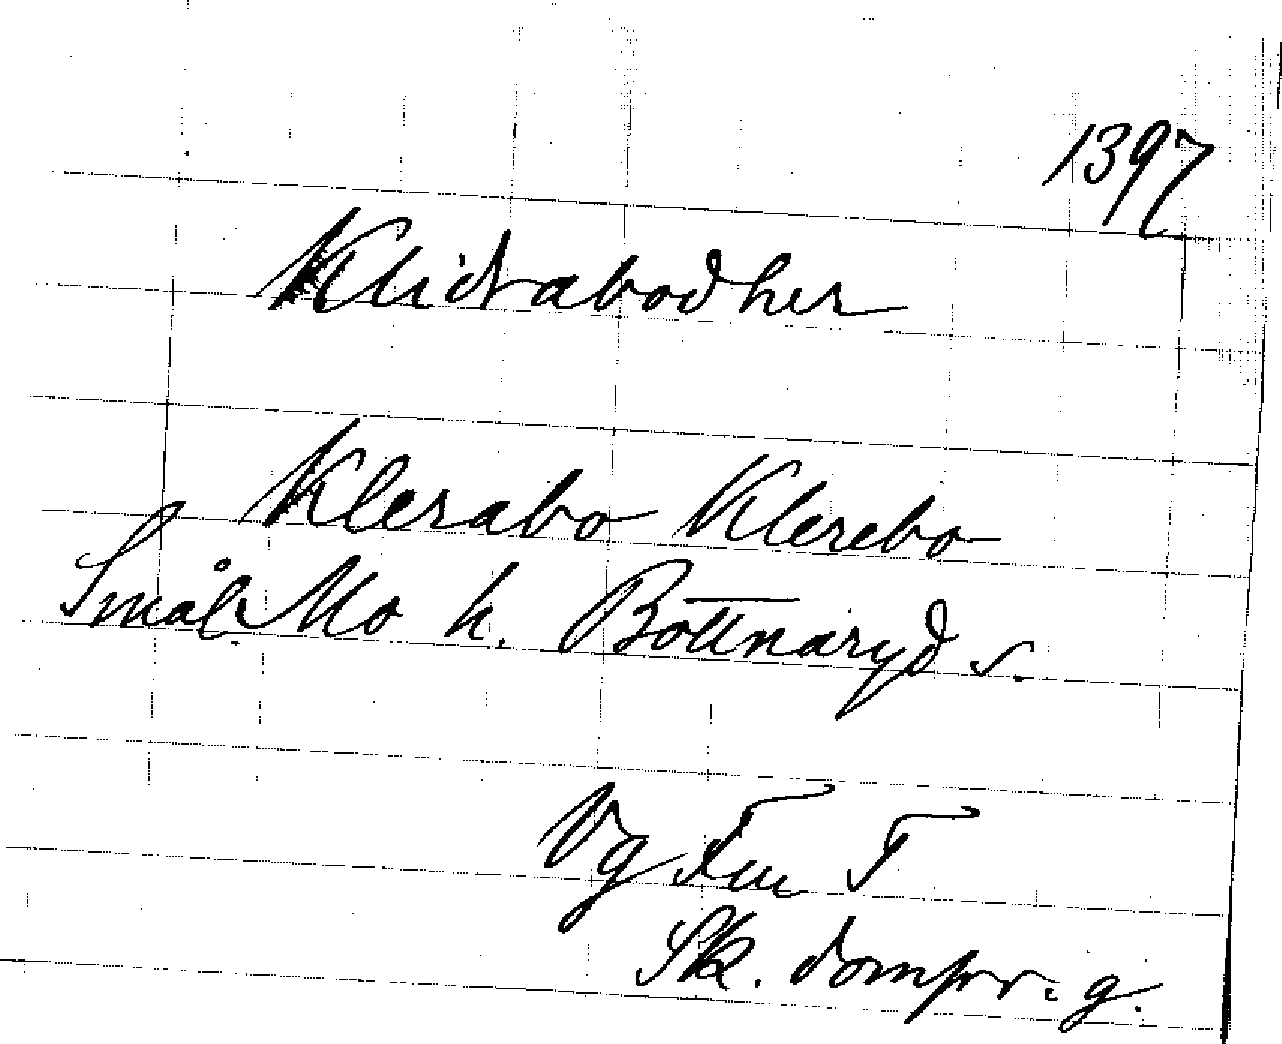 1397
Klidrabodher
Klerabo Klerebo
Smål. Mo h. Bottnaryd s.
Vg Fm F
Sk. dompr. g.